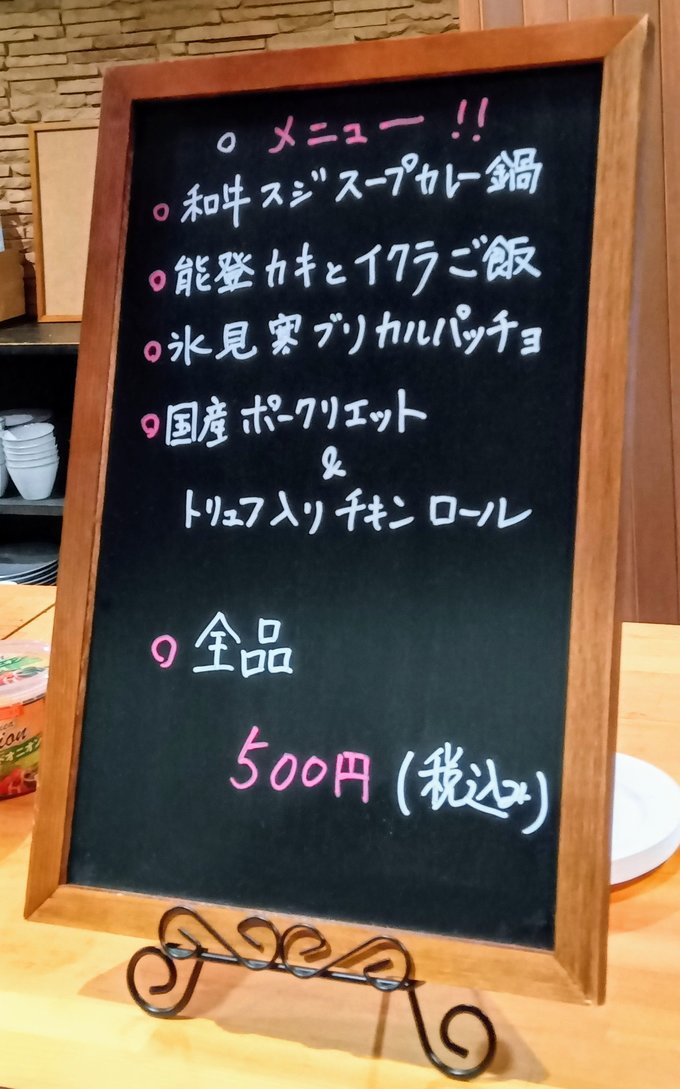 ○ メニュー!!
○ 和牛スジスープカレー鍋
○ 能登カキとイクラご飯
○ 氷見寒ブリカルパッチョ
○ 国産ポークリエット
&
トリュフ入りチキンロール
○ 全品
500円(税込み)
ion
ドオニオン